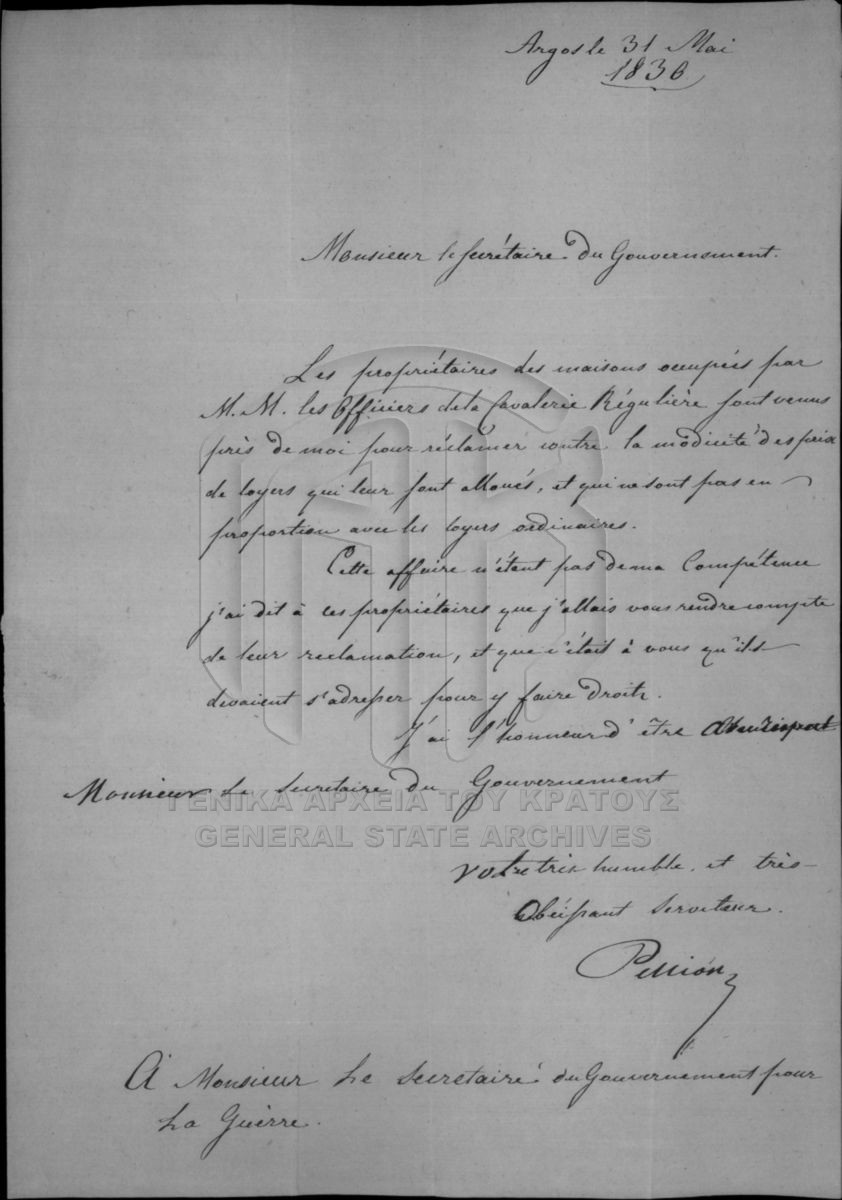 Argos le 31 Mai
1830
Monsieur le secrétaire du Gouvernement.
Les propriétaires des maisons occupées par
M. M. les Officiers de la Cavalerie Régulière sont venus
près de moi pour réclamer contre la modicité des prix
de loyers qui leur sont alloués, et qui ne sont pas en
proportion avec les loyers ordinaires.
Cette affaire n'étant pas de ma Compétence
j'ai dit à ces propriétaires que j'allais vous rendre compte
de leur reclamation, et que c'était à vous qu'ils
devaient s'adresser pour y faire droit.
J'ai l'honneur d'être
Monsieur Le Secretaire du Gouvernement
ΓΕΝΙΚΑ ΑΡΧΕΙΑ ΤΟΥ ΚΡΑΤΟΥΣ
GENERAL STATE ARCHIVES
votre très humble, et très
Obéissant Serviteur.
Pellión
A Monsieur Le Secretaire du Gouvernement pour
La Guèrre.